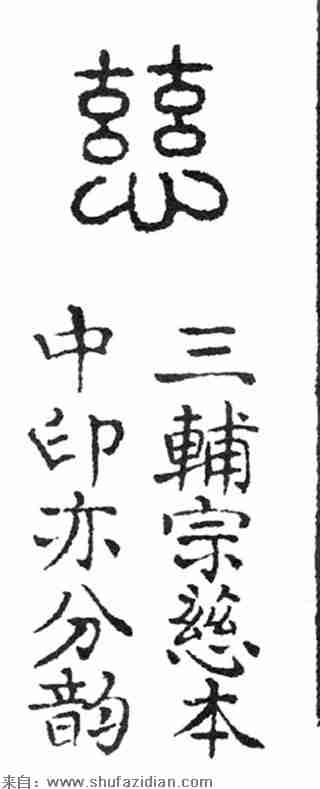 慈
三輔宗慈本
中印亦分韵
来自：www.shufazidian.com